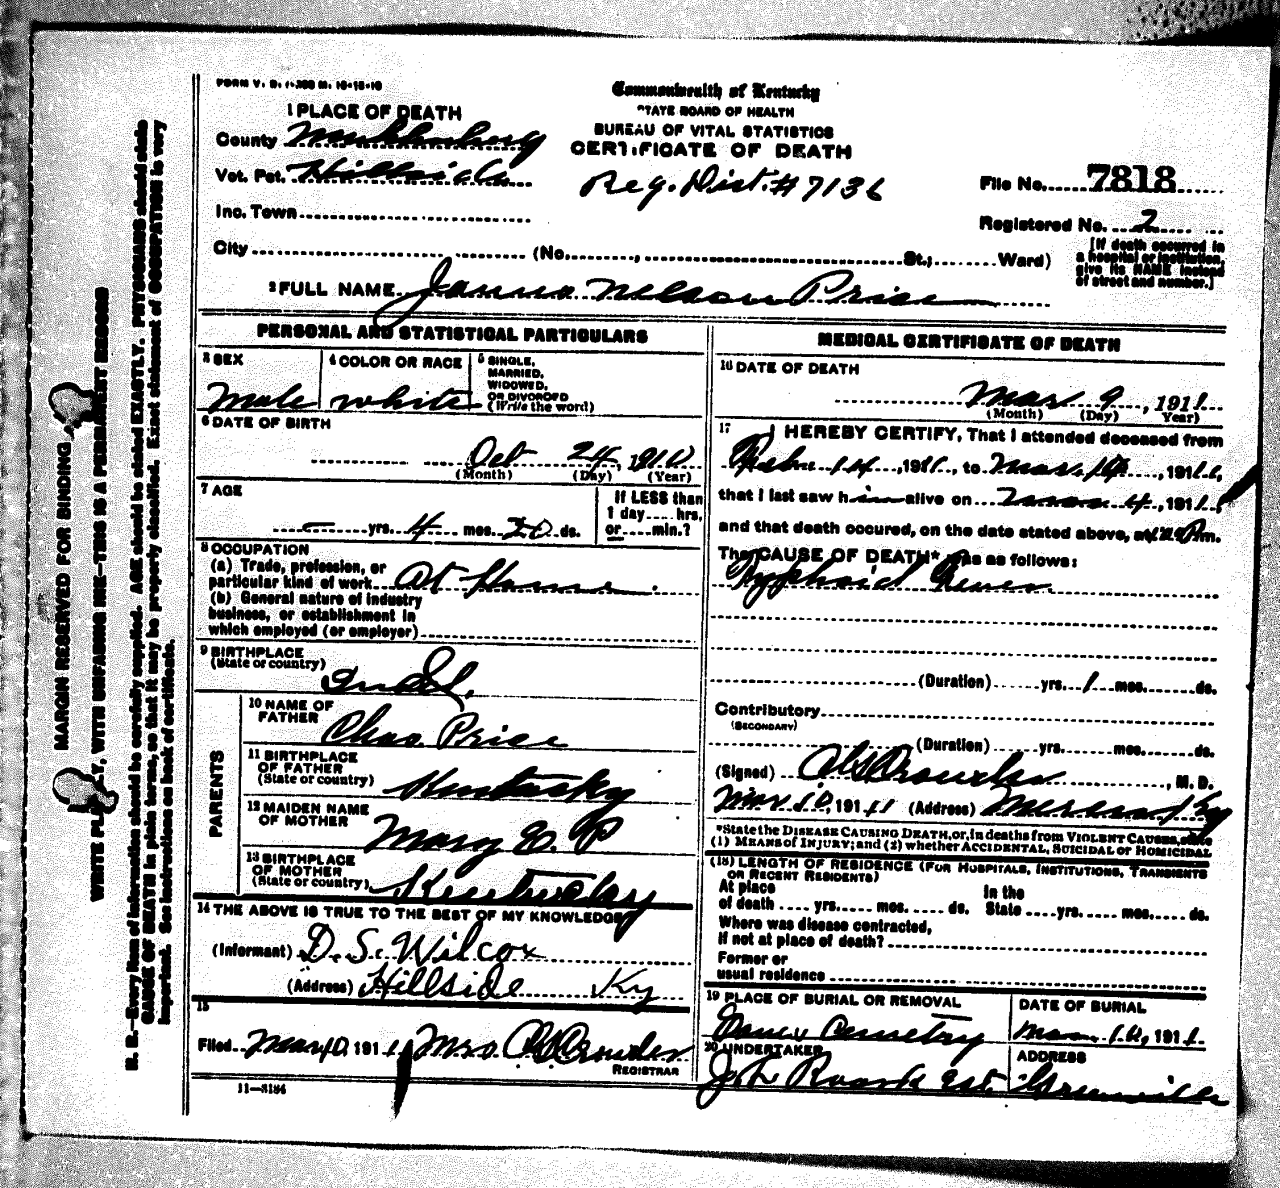 FORM V. S. 1-300 M. 10-15-10
Commonwealth of Kentucky
STATE BOARD OF HEALTH
BUREAU OF VITAL STATISTICS
CERTIFICATE OF DEATH
1 PLACE OF DEATH
County Muhlenberg
Vot. Pct. Hillside
Reg. Dist. # 7136
File No. 7818
Inc. Town
Registered No. 2
City (No. , St.; Ward)
[If death occurred in a hospital or institution, give its NAME instead of street and number.]
2 FULL NAME Nelson Price
PERSONAL AND STATISTICAL PARTICULARS
3 SEX
Male
4 COLOR OR RACE
white
5 SINGLE, MARRIED, WIDOWED, OR DIVORCED
(Write the word)
6 DATE OF BIRTH
Oct 24, 1910
(Month) (Day) (Year)
7 AGE
— yrs. 4 mos. 20 ds.
If LESS than 1 day hrs. or min.?
8 OCCUPATION
(a) Trade, profession, or
particular kind of work At Home
(b) General nature of industry
business, or establishment in
which employed (or employer)
9 BIRTHPLACE
(State or country)
PARENTS
10 NAME OF FATHER
Chas Price
11 BIRTHPLACE OF FATHER
(State or country)
Kentucky
12 MAIDEN NAME OF MOTHER
Mary E. P
13 BIRTHPLACE OF MOTHER
(State or country)
Kentucky
14 THE ABOVE IS TRUE TO THE BEST OF MY KNOWLEDGE
(Informant) D. S. Wilcox
(Address) Hillside Ky
15
Filed Mar 10 1911 Mrs Crowder
REGISTRAR
11—3184
MEDICAL CERTIFICATE OF DEATH
16 DATE OF DEATH
Mar 9, 1911
(Month) (Day) Year)
17 I HEREBY CERTIFY, That I attended deceased from
14, 1911, to Mar. , 1911,
that I last saw him alive on Mar 4, 1911,
and that death occured, on the date stated above, at P.m.
The CAUSE OF DEATH* was as follows:
Typhoid Fever
(Duration) yrs. 1 mos. ds.
Contributory
(SECONDARY)
(Duration) yrs. mos. ds.
(Signed) Crowder, M. D.
Mar 10, 1911 (Address) Ky
*State the DISEASE CAUSING DEATH, or, in deaths from VIOLENT CAUSES, state
(1) MEANS of INJURY; and (2) whether ACCIDENTAL, SUICIDAL or HOMICIDAL
(18) LENGTH OF RESIDENCE (FOR HOSPITALS, INSTITUTIONS, TRANSIENTS
OR RECENT RESIDENTS)
At place of death yrs. mos. ds.
In the State yrs. mos. ds.
Where was disease contracted,
if not at place of death?
Former or
usual residence
19 PLACE OF BURIAL OR REMOVAL
Cemetery
DATE OF BURIAL
Mar 10, 1911
20 UNDERTAKER
J. L. Roark Est.
ADDRESS
Greenville
MARGIN RESERVED FOR BINDING
WRITE PLAINLY, WITH UNFADING INK—THIS IS A PERMANENT RECORD
N. B.—Every item of information should be carefully supplied. AGE should be stated EXACTLY. PHYSICIANS should state
CAUSE OF DEATH in plain terms, so that it may be properly classified. Exact statement of OCCUPATION is very
important. See instructions on back of certificate.